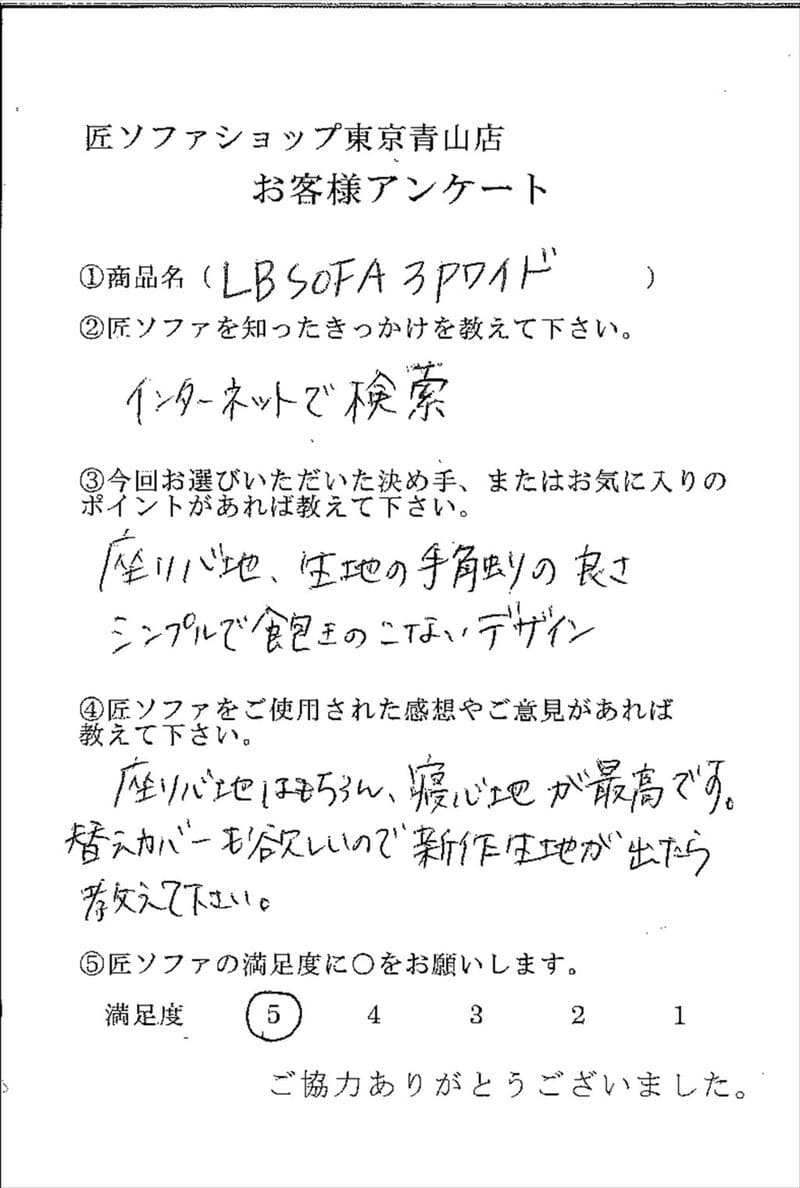 匠ソファショップ東京青山店
お客様アンケート
①商品名（LB SOFA 3Pワイド）
②匠ソファを知ったきっかけを教えて下さい。
インターネットで検索
③今回お選びいただいた決め手、またはお気に入りの
ポイントがあれば教えて下さい。
座り心地、生地の手触りの良さ
シンプルで飽きのこないデザイン
④匠ソファをご使用された感想やご意見があれば
教えて下さい。
座り心地はもちろん、寝心地が最高です。
替えカバーも欲しいので新作生地が出たら
教えて下さい。
⑤匠ソファの満足度に〇をお願いします。
満足度 5 4 3 2 1
ご協力ありがとうございました。